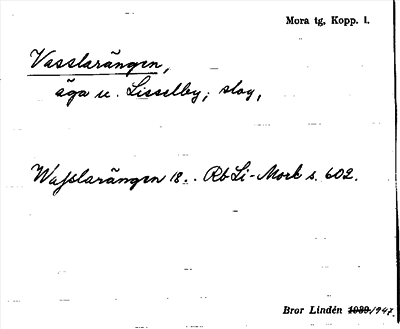 Mora tg, Kopp. l.
Vasslarängen,
äga u. Lisselby; slog,
Wasslarängen 18.. Rb Li-Mork s. 602.
Bror Lindén 1939/1947.